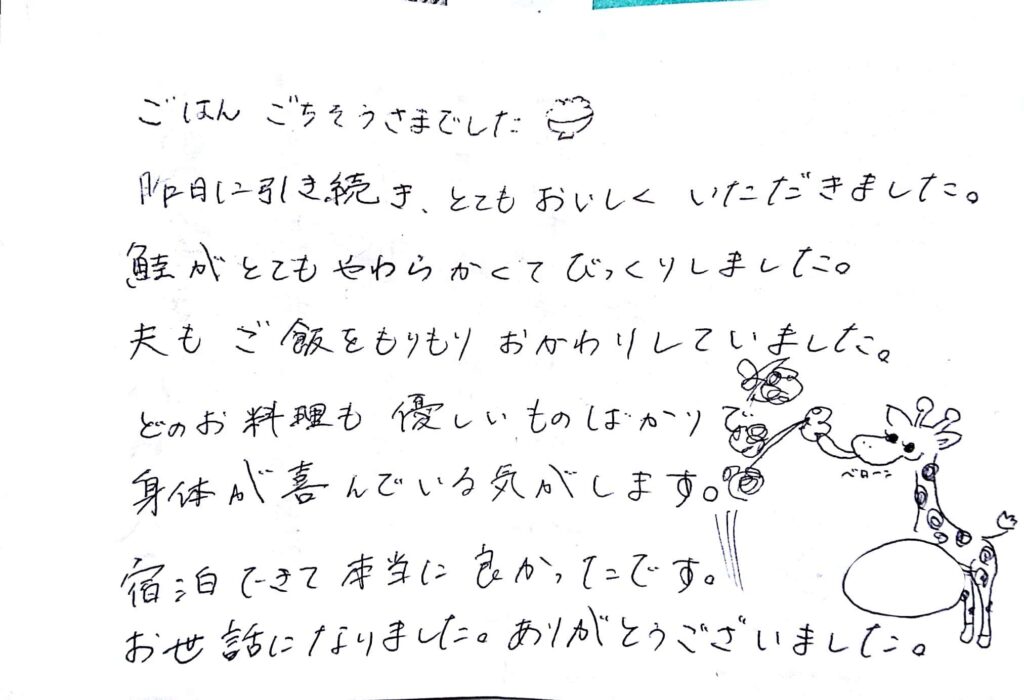 ごはん ごちそうさまでした
昨日に引き続き、とてもおいしく いただきました。
鮭がとてもやわらかくてびっくりしました。
夫もご飯をもりもりおかわりしていました。
どのお料理も優しいものばかりで
ベローン
身体が喜んでいる気がします。
宿泊できて本当に良かったです。
お世話になりました。ありがとうございました。